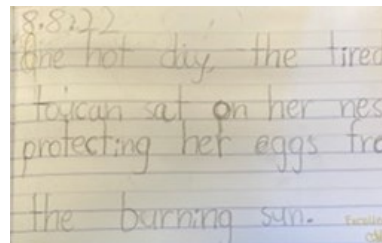 8.8.22
One hot day, the tired
toucan sat on her nes
protecting her eggs fro
the burning sun.